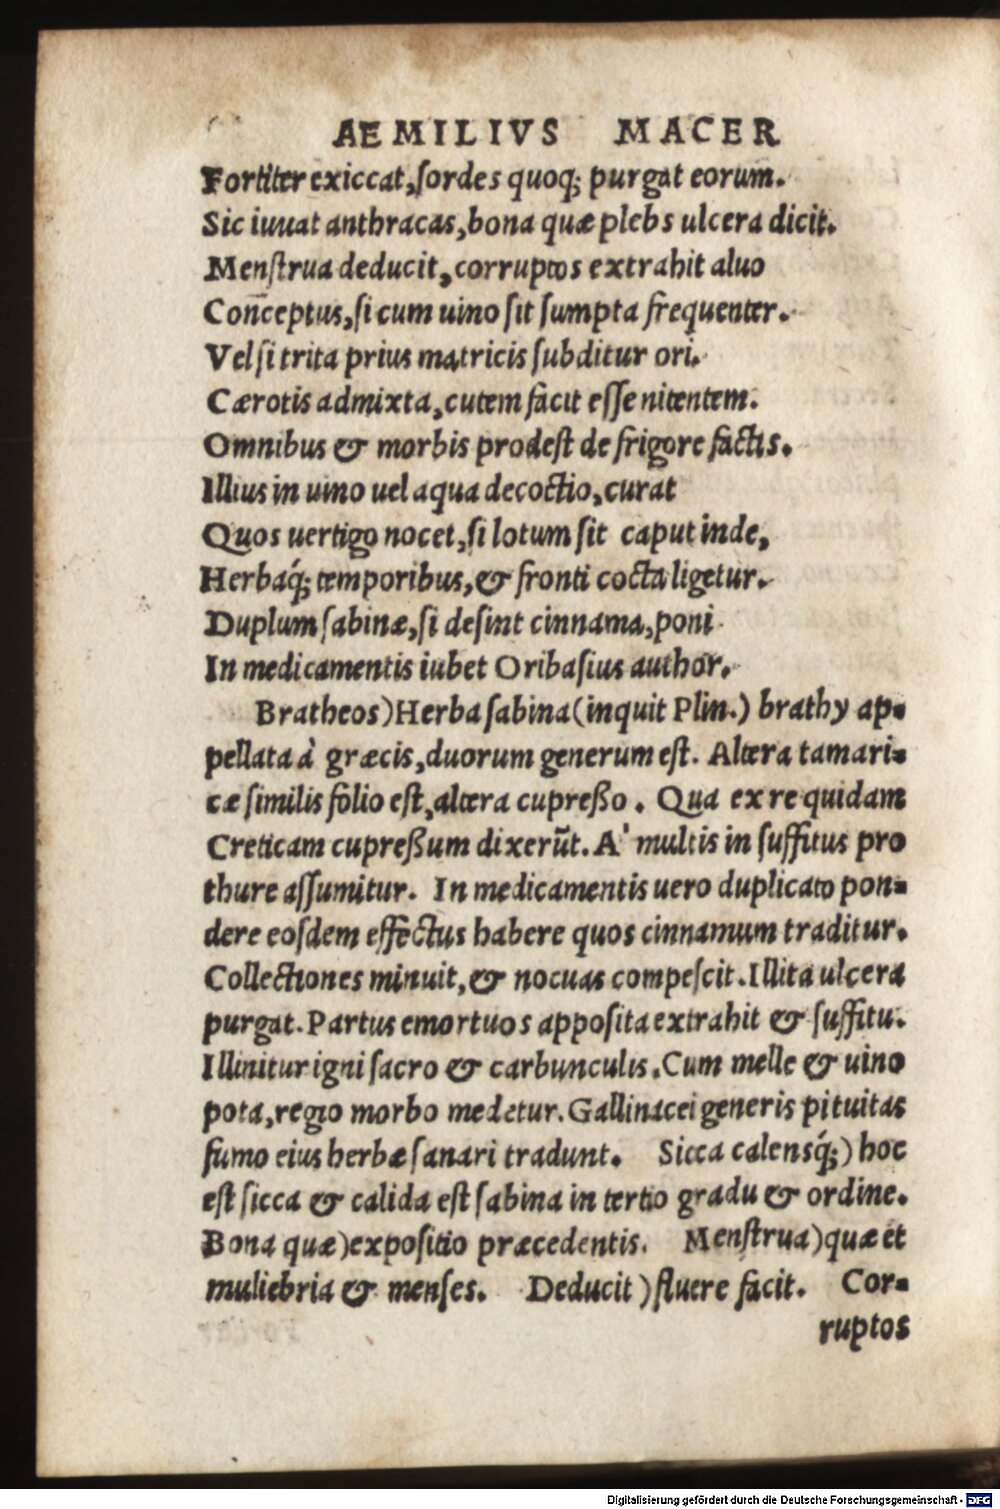 AEMILIVS MACER
Fortiter exiccat, sordes quoq; purgat eorum.
Sic iuuat anthracas, bona quæ plebs ulcera dicit.
Menstrua deducit, corruptos extrahit aluo
Conceptus, si cum uino sit sumpta frequenter.
Vel si trita prius matricis subditur ori.
Cærotis admixta, cutem facit esse nitentem.
Omnibus & morbis prodest de frigore factis.
Illius in uino uel aqua decoctio, curat
Quos uertigo nocet, si lotum sit caput inde,
Herbaq́; temporibus, & fronti cocta ligetur.
Duplum sabinæ, si desint cinnama, poni
In medicamentis iubet Oribasius author.
Bratheos) Herba sabina (inquit Plin.) brathy ap-
pellata à græcis, duorum generum est. Altera tamari-
cæ similis folio est, altera cupreßo. Qua ex re quidam
Creticam cupreßum dixerũt. A' multis in suffitus pro
thure assumitur. In medicamentis uero duplicato pon-
dere eosdem effectus habere quos cinnamum traditur.
Collectiones minuit, & nocuas compescit. Illita ulcera
purgat. Partus emortuos apposita extrahit & suffitu.
Illinitur igni sacro & carbunculis. Cum melle & uino
pota, regio morbo medetur. Gallinacei generis pituitas
fumo eius herbæ sanari tradunt. Sicca calensq́;) hoc
est sicca & calida est sabina in tertio gradu & ordine.
Bona quæ) expositio præcedentis. Menstrua) quæ et
muliebria & menses. Deducit) fluere facit. Cor-
ruptos
Digitalisierung gefördert durch die Deutsche Forschungsgemeinschaft - DFG